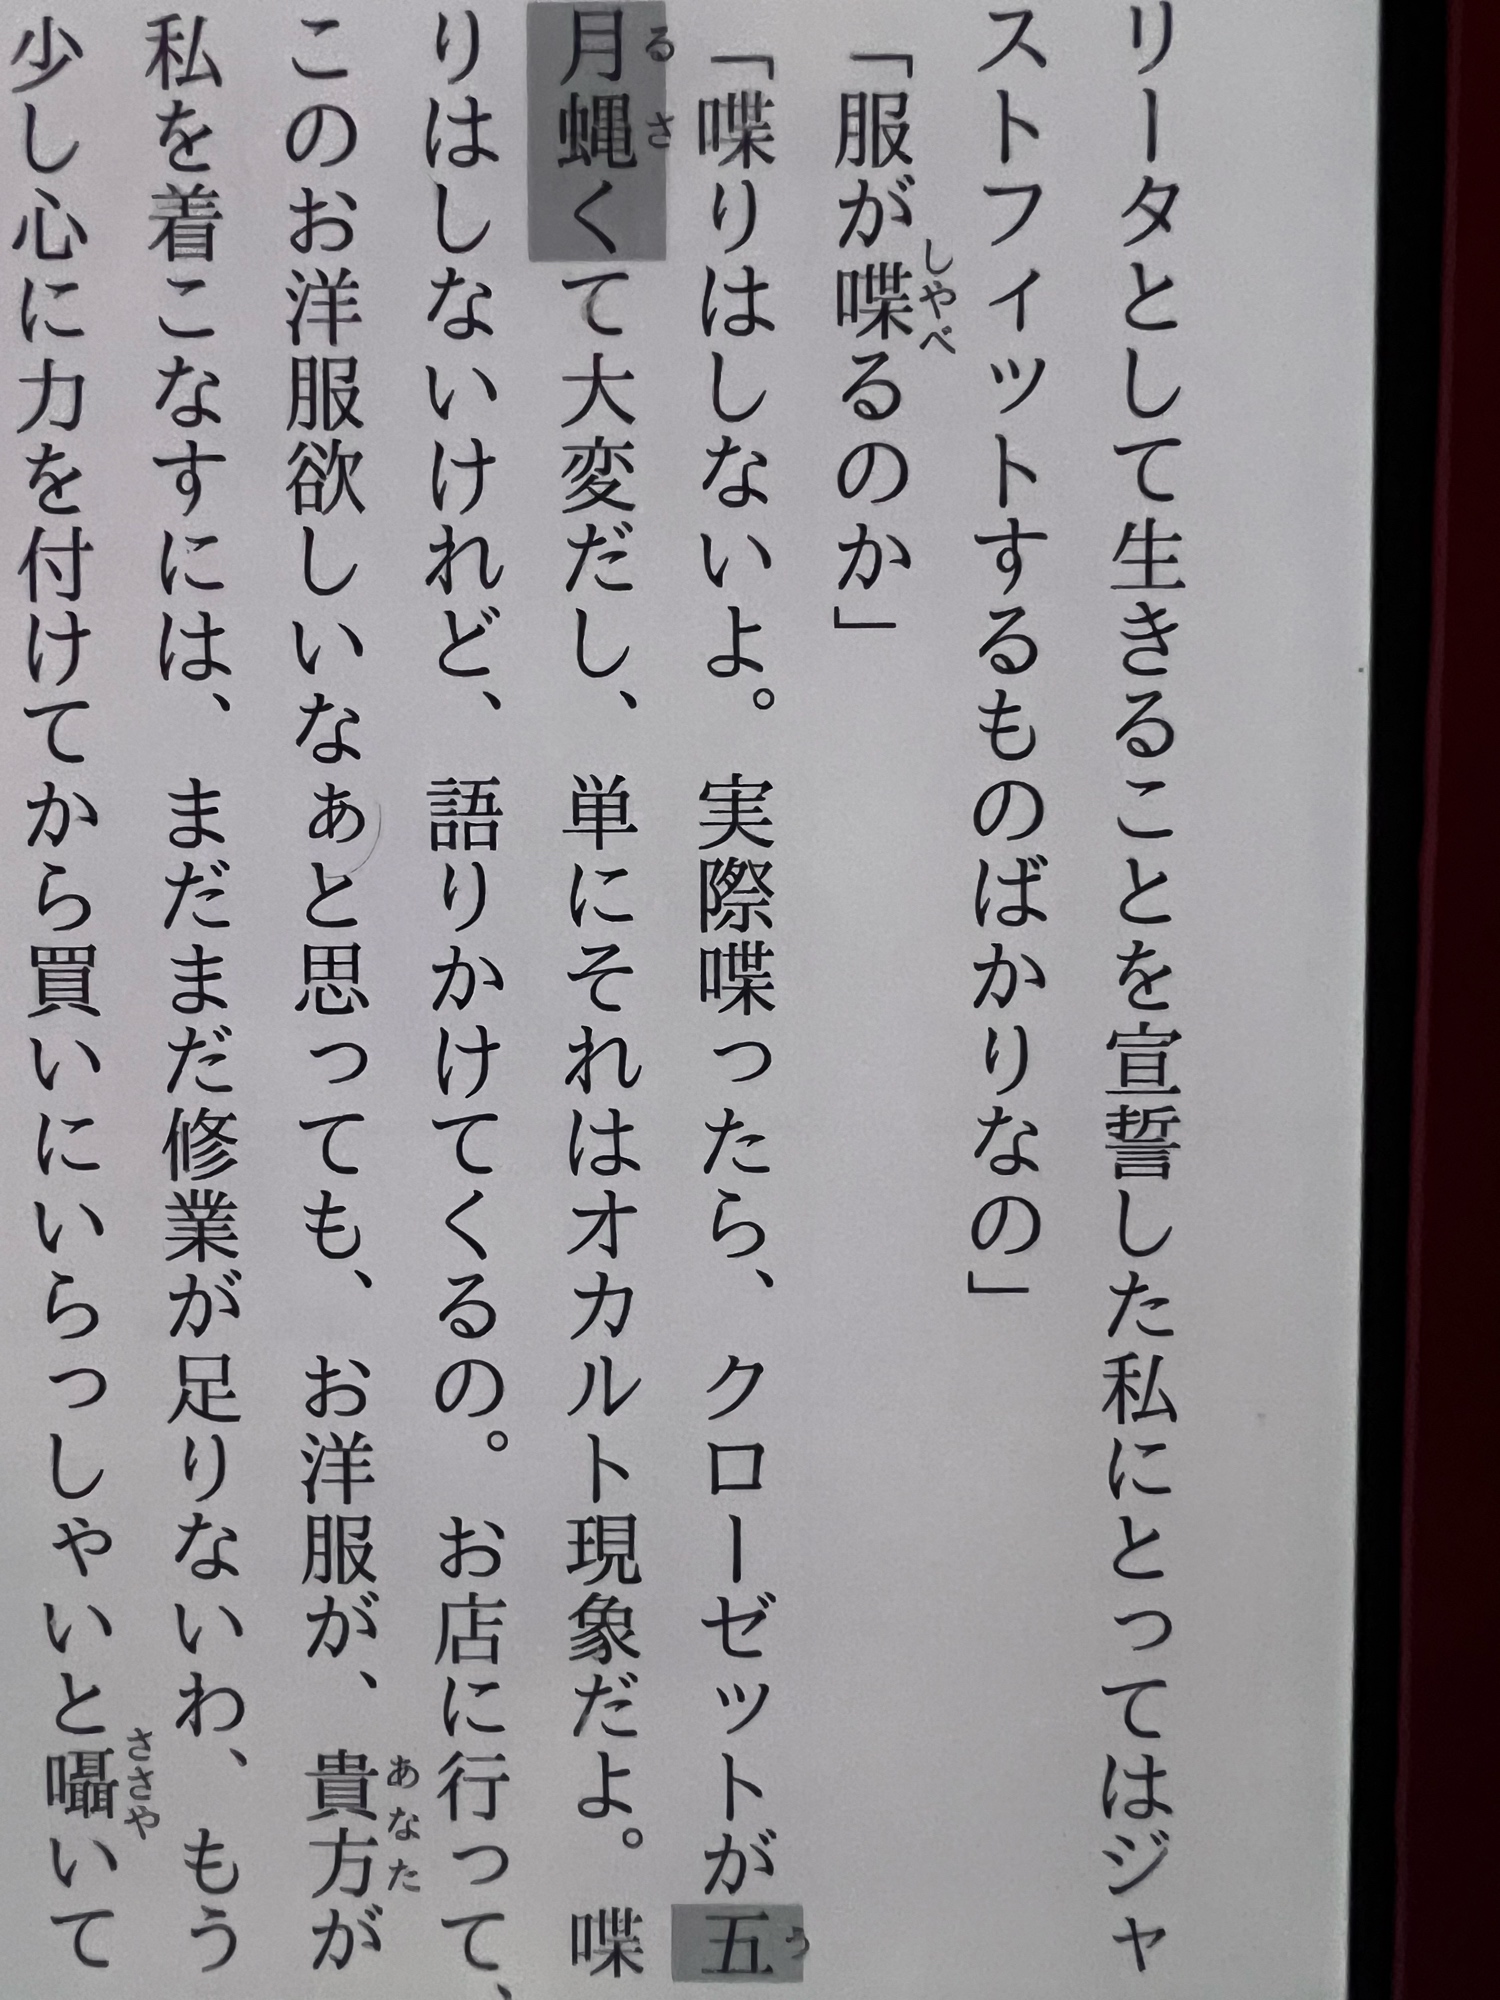 リータとして生きることを宣誓した私にとってはジャ
ストフィットするものばかりなの」
「服が喋るのか」
「喋りはしないよ。実際喋ったら、クローゼットが五
月蝿くて大変だし、単にそれはオカルト現象だよ。喋
りはしないけれど、語りかけてくるの。お店に行って、
このお洋服欲しいなぁと思っても、お洋服が、貴方が
私を着こなすには、まだまだ修業が足りないわ、もう
少し心に力を付けてから買いにいらっしゃいと囁いて